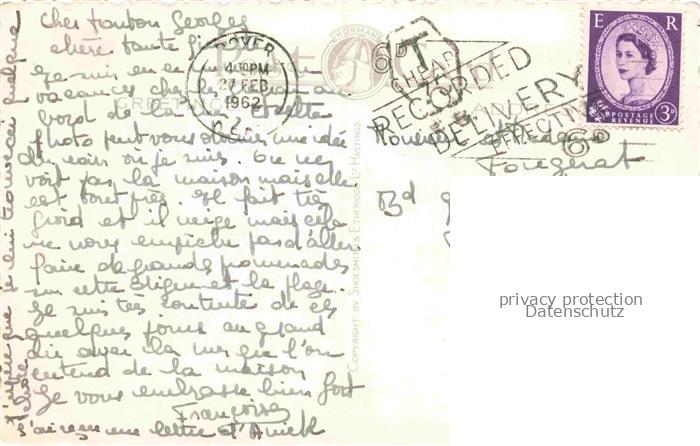 Cher tonton Georges
chère tante
Je suis en
vacances chez
bord de la et cette
photo peut vous donner une idée
du coin où je suis. On ne
voit pas la maison mais elle
est tout près. Il fait très
froid et il neige mais cela
ne nous empêche pas d'aller
faire de grandes promenades
sur cette digue et la plage.
Je suis très contente de ces
quelques jours au grand
air avec la mer que l'on
entend de la maison
Je vous embrasse bien fort
Françoise
J'ai reçu une lettre d'Annick
GREETINGS
NORMAN
COPYRIGHT BY SHOESMITH & ETHERIDGE LTD HASTINGS
DOVER
4 PM
27 FEB
1962
T
6D
CHEAP
RECORDED
DELIVERY
EFFECTIVE
6D
E R
POSTAGE
REVENUE
3D
Monsieur et Madame
Fougerat
Bd
privacy protection
Datenschutz